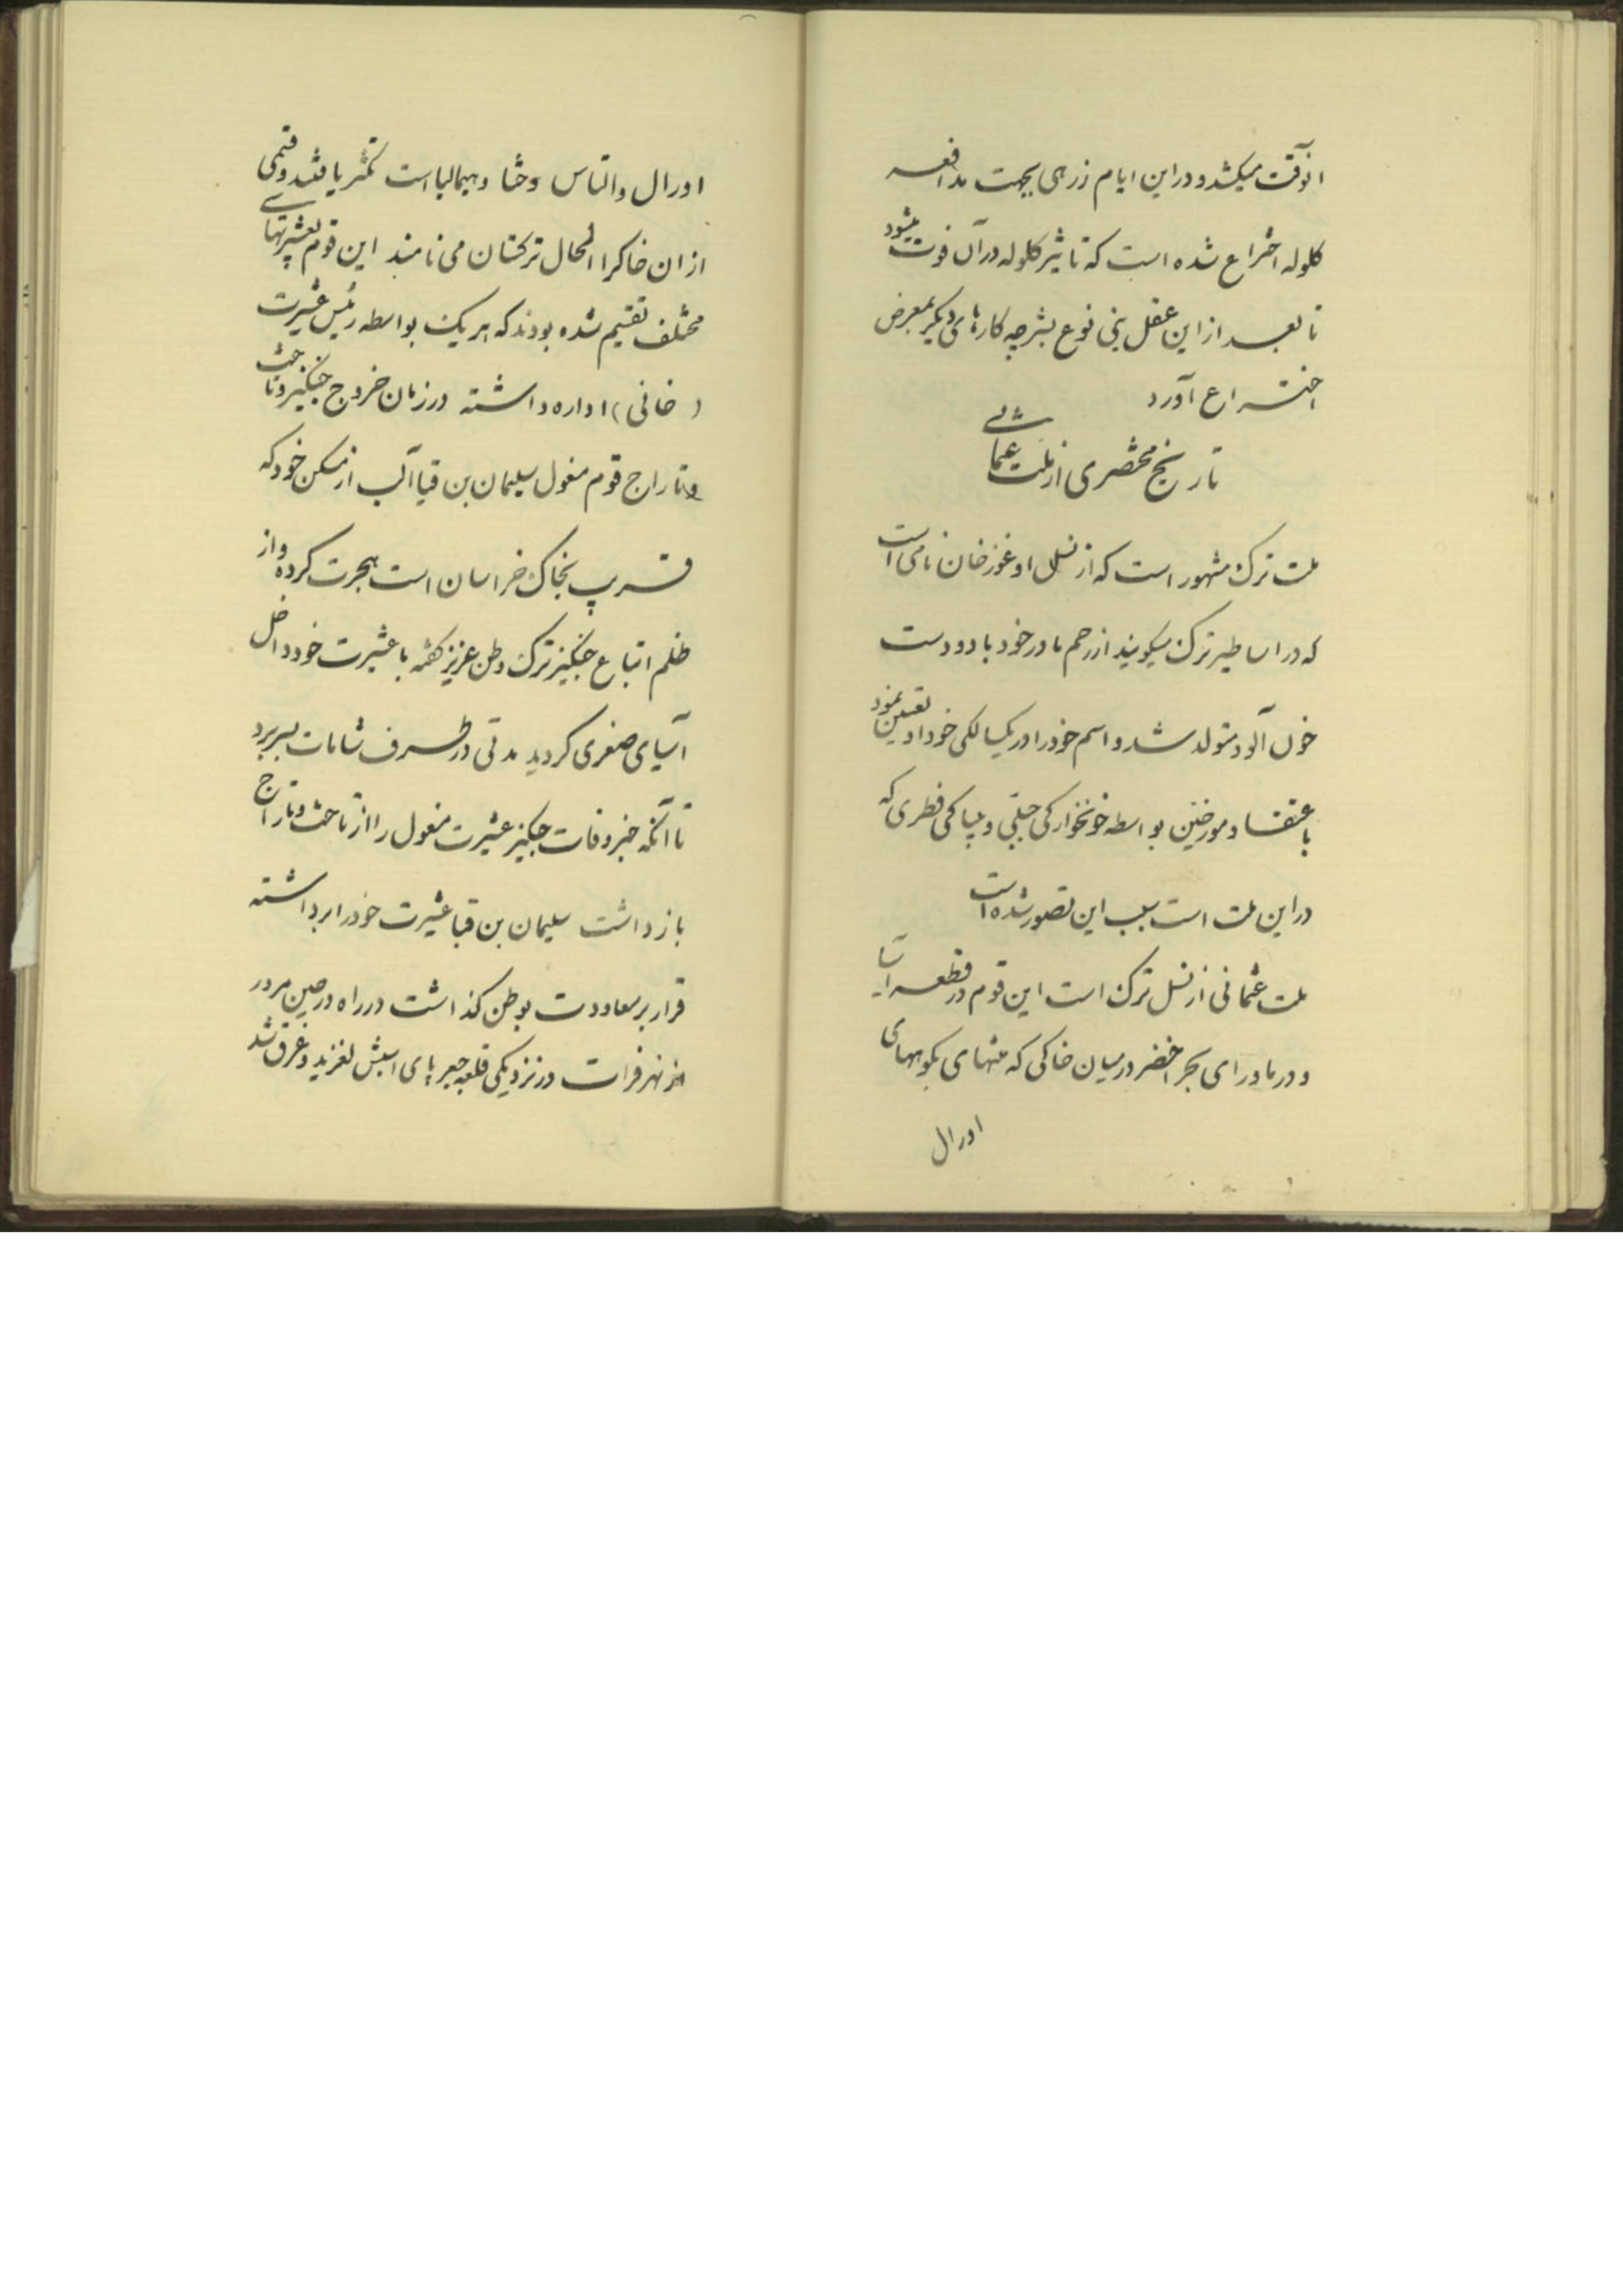 انوقت میکشد و در این ایام زرهی بجهت مدافعه
کلوله اختراع شده است که تاثیر کلوله در آن فوت میشود
تا بعد از این عقل بنی نوع بشر چه کارهای دیگر بمعرض
اختراع آورد
تاریخ مختصری از ملت عثمانی
ملت ترک مشهور است که از نسل اوغوز خان نامی است
که در اساطیر ترک میکویند از رحم مادر خود با دو دست
خون آلود متولد شد و اسم خود را در یکسالکی خود او تعیین نمود
باعتقاد مورخین بواسطه خونخوارکی جبلی و بیباکی فطری که
در این ملت است سبب این تصور شده است
ملت عثمانی از نسل ترک است این قوم در قطعه آسیا
و در ماورای بحر اخضر در میان خاکی که منتهای بکوههای
اورال
اورال و التاس و ختا و هیمالیا است تکثر یافتند و قتمی
از ان خاکرا الحال ترکستان می نامند این قوم بعشیرتهای
مختلف تقسیم شده بودند که هر یک بواسطه رئیس عشیرت
(خانی) اداره داشته در زمان خروج جنکیز و تاخت
و تاراج قوم مغول سلیمان بن قیا آلب از مسکن خود که
قریب بخاک خراسان است هجرت کرده و از
ظلم اتباع جنکیز ترک وطن عزیز کفته با عشیرت خود داخل
آسیای صغری کردید مدتی در طرف شامات بسر برد
تا آنکه خبر وفات جنکیز عشیرت مغول را از تاخت و تاراج
باز داشت سلیمان بن قیا عشیرت خود را برداشته
قرار بر معاودت بوطن کذاشت در راه در حین مرور
از نهر فرات در نزدیکی قلعه جبر پای اسبش لغزید و غرق شد